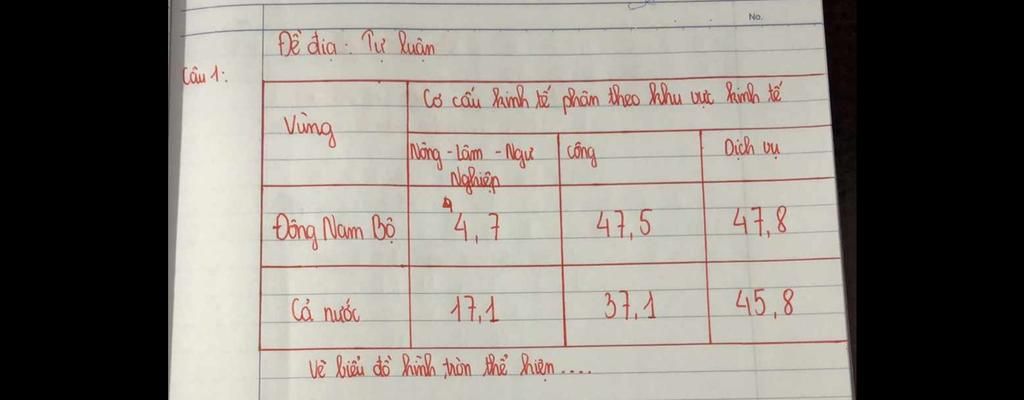 No.
Đề địa: Tự luận
Câu 1:
Cơ cấu kinh tế phân theo khu vực kinh tế
Vùng
Nông - Lâm - Ngư
Nghiệp
Công
Dịch vụ
Đông Nam Bộ
4,7
47,5
47,8
Cả nước
17,1
37,1
45,8
Vẽ biểu đồ hình tròn thể hiện....